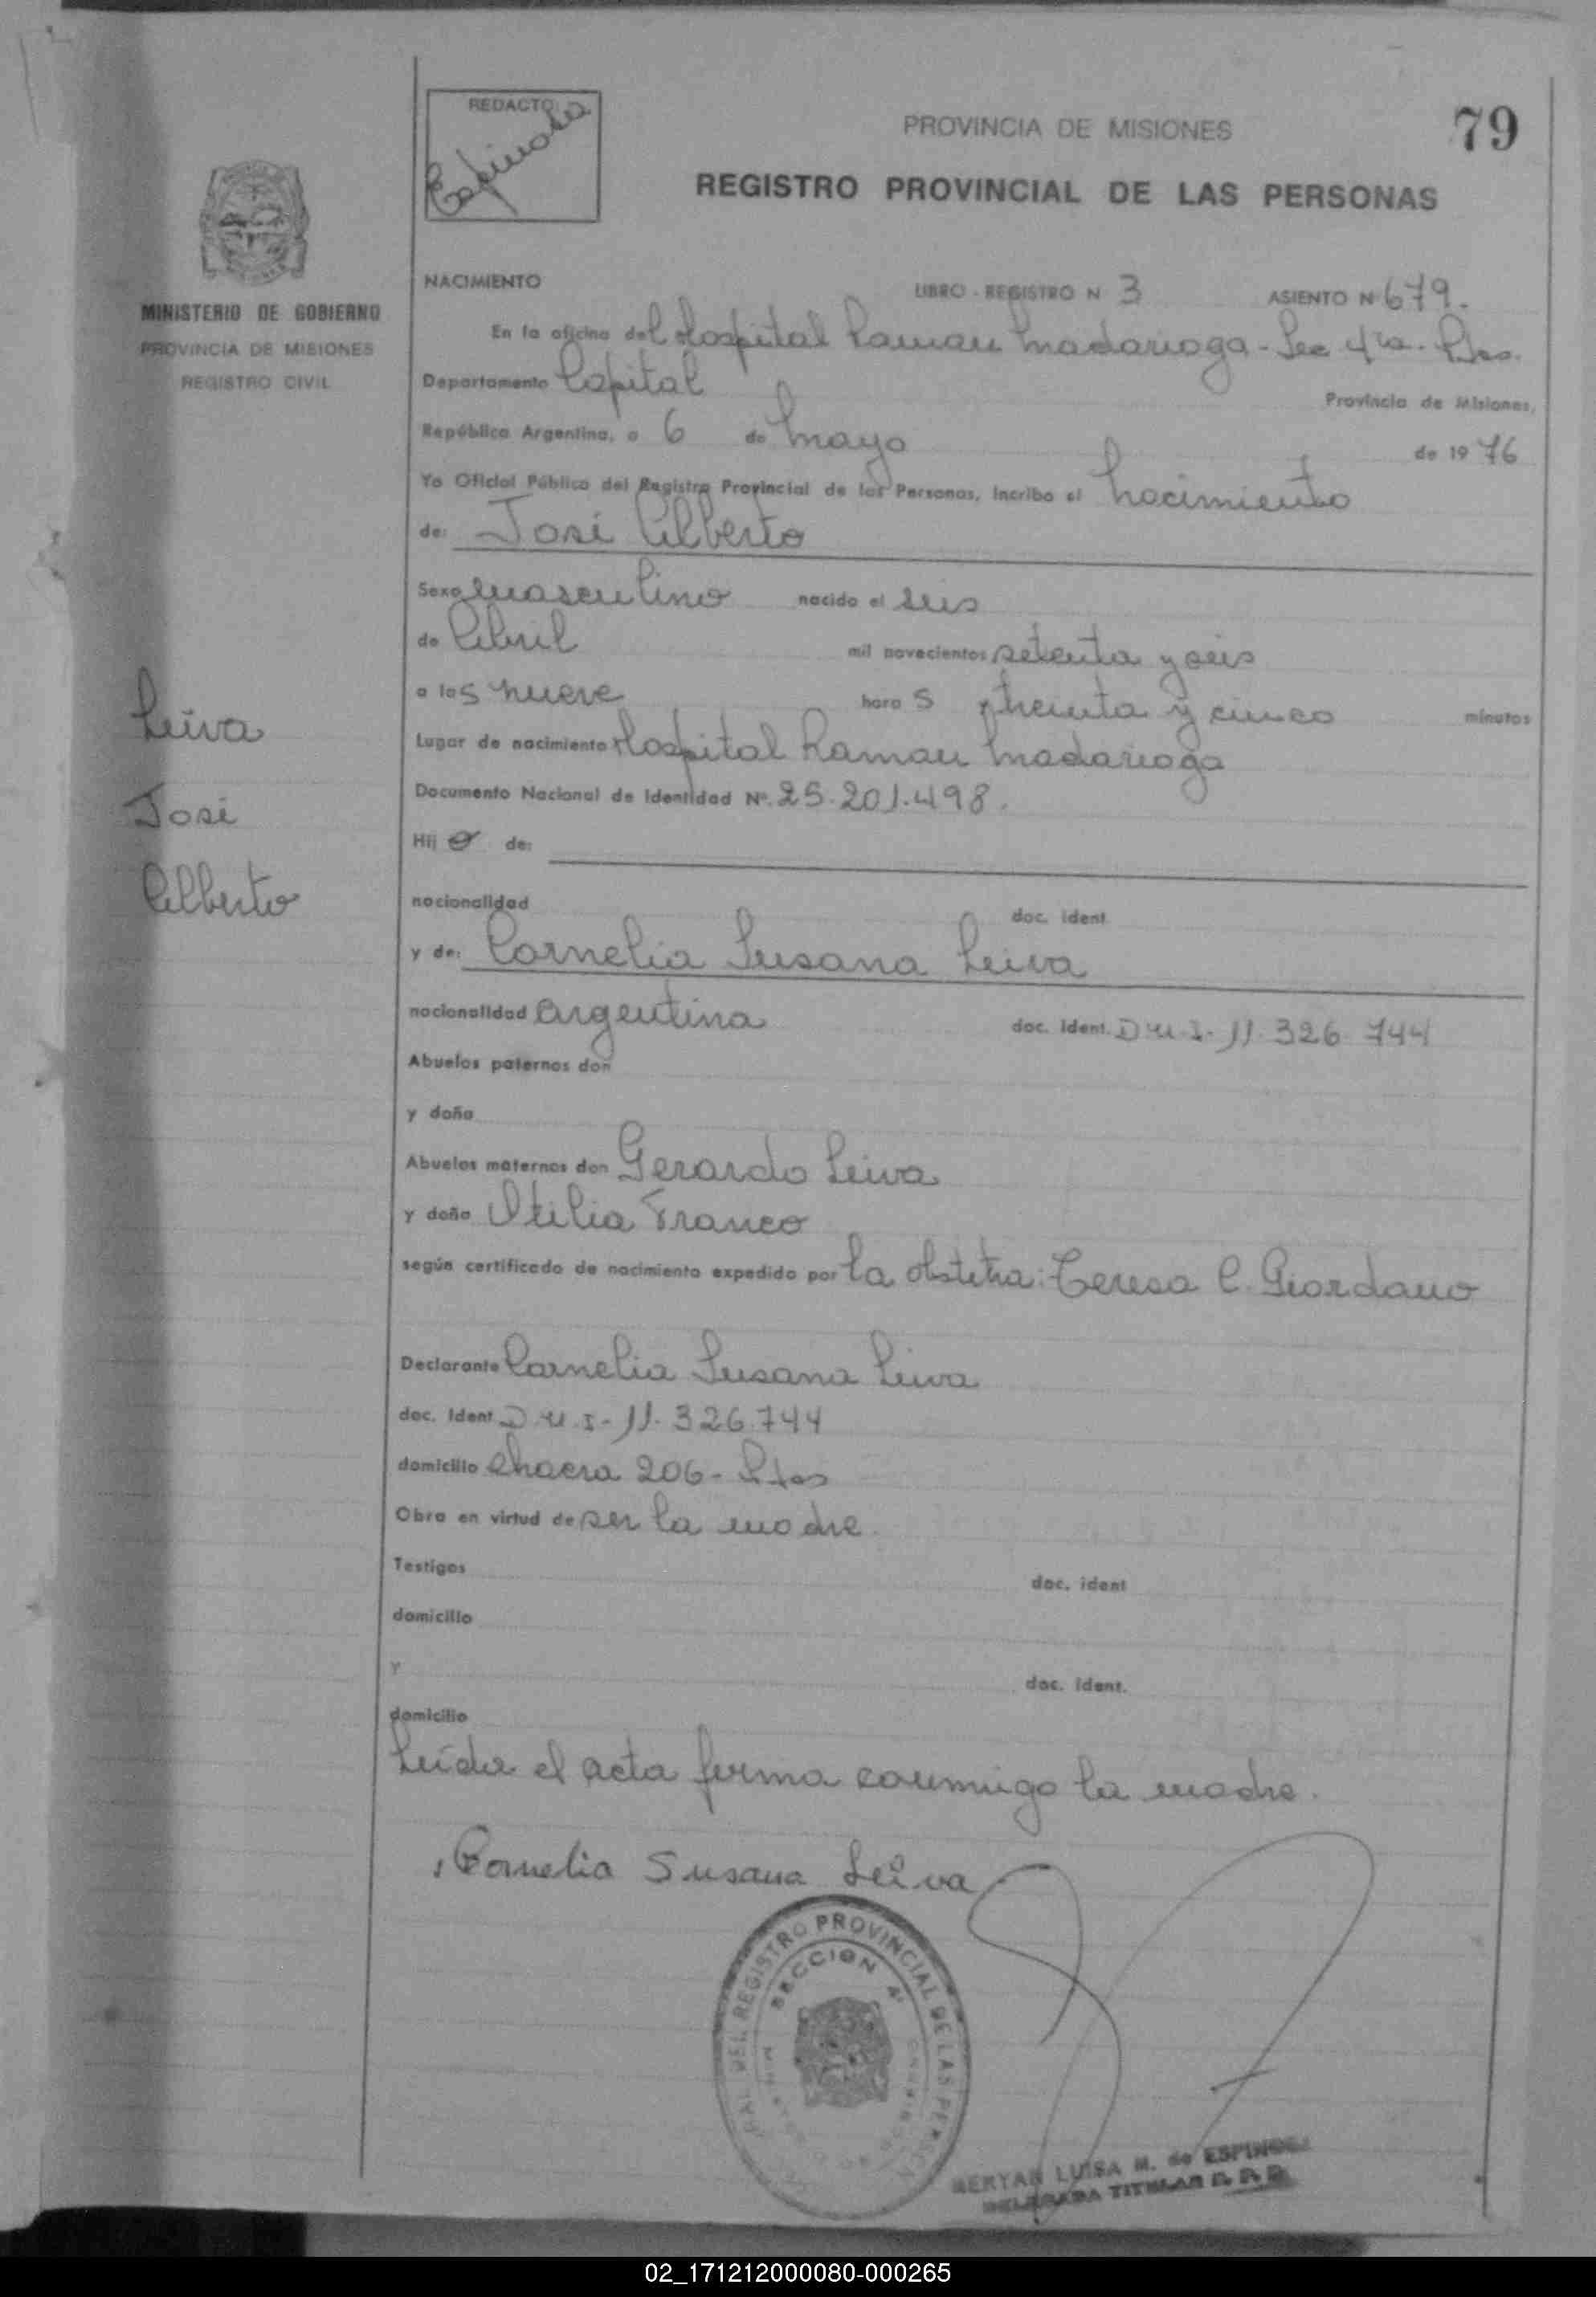 REDACTO:
Espinosa
PROVINCIA DE MISIONES
79
REGISTRO PROVINCIAL DE LAS PERSONAS
MINISTERIO DE GOBIERNO
PROVINCIA DE MISIONES
REGISTRO CIVIL
NACIMIENTO LIBRO - REGISTRO N 3 ASIENTO Nº 679.
En la oficina del Hospital Ramon Madariaga - Sec 4ta. Pdas.
Departamento Capital Provincia de Misiones,
República Argentina, a 6 de Mayo de 19 76
Yo Oficial Público del Registro Provincial de las Personas, incribo el Nacimiento
de: José Alberto
Sexo masculino nacido el seis
de Abril mil novecientos setenta y seis
a las nueve hora s treinta y cinco minutos
Lugar de nacimiento Hospital Ramon Madariaga
Documento Nacional de Identidad Nº. 25.201.498.
Hij o de:
nacionalidad doc. ident.
y de: Cornelia Susana Leiva
nacionalidad Argentina doc. ident. D.N.I. 11.326.744
Abuelos paternos don
y doña
Abuelos maternos don Gerardo Leiva
y doña Otilia Franco
según certificado de nacimiento expedido por la obstetra: Teresa C. Giordano
Declarante Cornelia Susana Leiva
doc. Ident. D.N.I. 11.326.744
domicilio Chacra 206 - Pdas
Obra en virtud de ser la madre.
Testigos doc. ident
domicilio
y doc. ident.
domicilio
Leída el acta firma conmigo la madre.
Cornelia Susana Leiva
Leiva
José
Alberto
DEL REGISTRO PROVINCIAL DE LAS PERSON
SECCION 4ª
LUISA M. de ESPINOSA
DELEGADA TITULAR R. P. P.
02_171212000080-000265